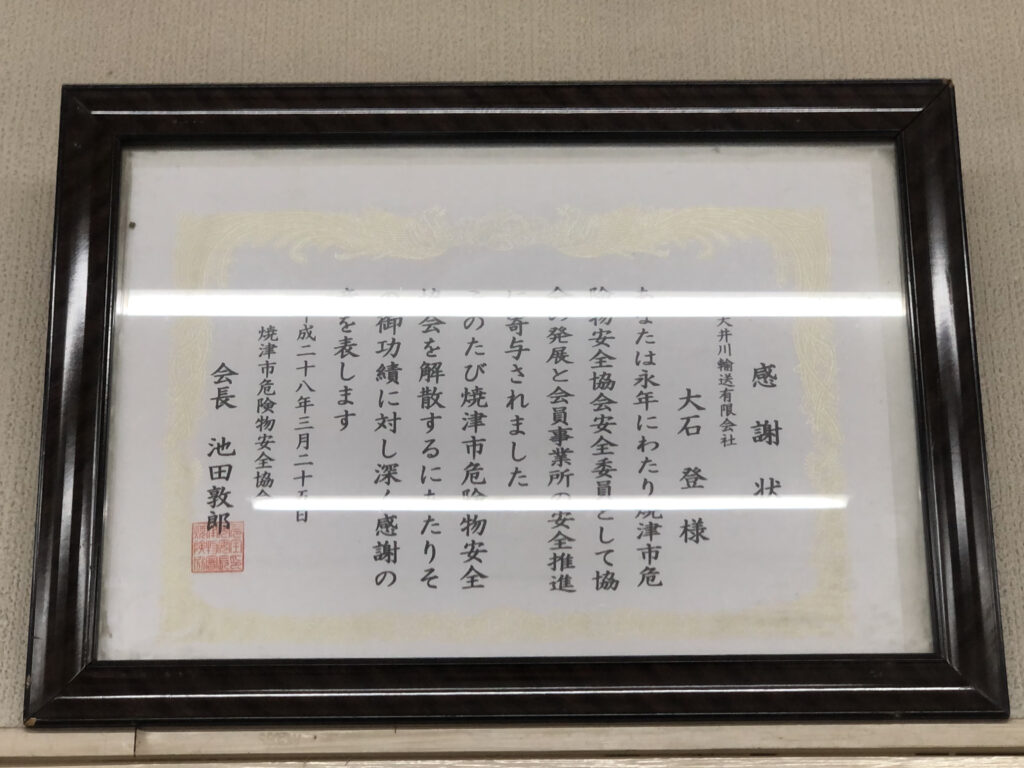 感謝状
大井川輸送有限会社
大石 登 様
あなたは永年にわたり焼津市危
険物安全協会安全委員として協
会の発展と会員事業所の安全推進
に寄与されました
このたび焼津市危険物安全
協会を解散するにあたりそ
の御功績に対し深く感謝の
意を表します
平成二十八年三月二十五日
焼津市危険物安全協会
会長 池田敦郎